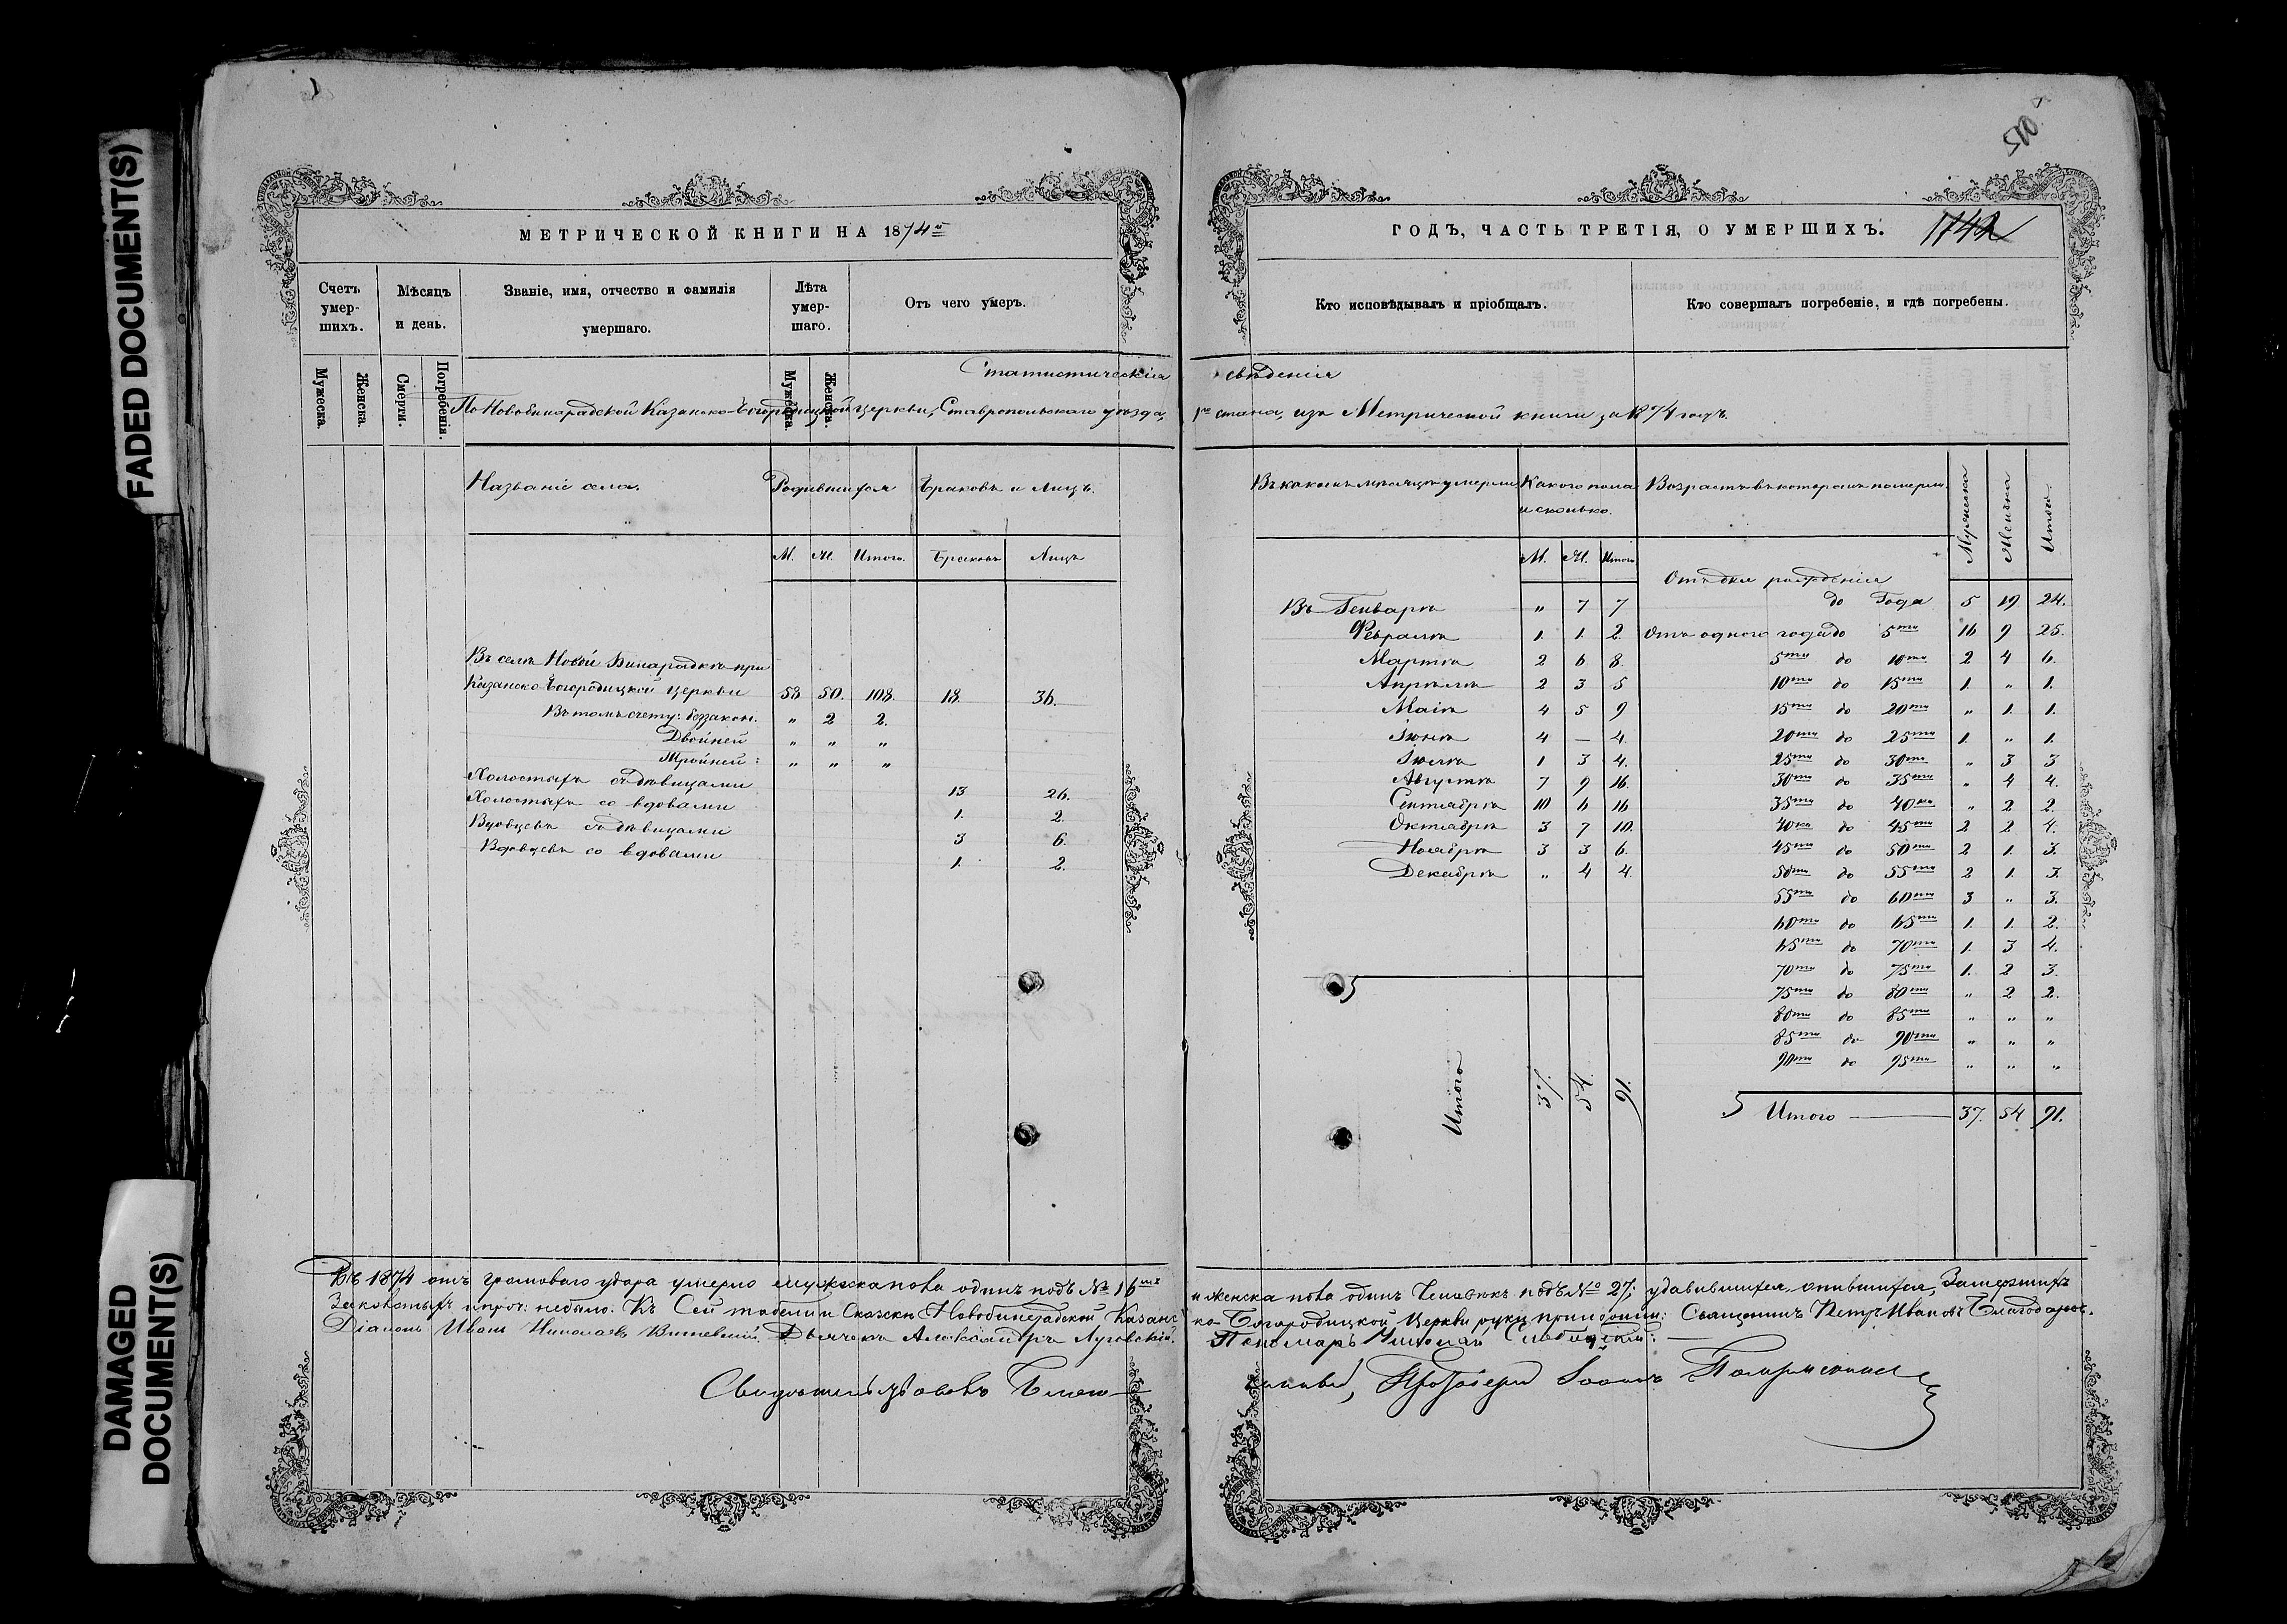 FADED DOCUMENT(S)
DAMAGED DOCUMENT(S)
МЕТРИЧЕСКОЙ КНИГИ НА 1874й
Счетъ умер- шихъ.
Мѣсяцъ и день.
Званіе, имя, отчество и фамилія умершаго.
Лѣта умер- шаго.
Отъ чего умеръ.
Мужеска. Женска. Смерти. Погребенія. Мужеска. Женска.
Статистическія
По Новобинарадской Казанско-Богородицкой церкви, Ставропольскаго уѣзда,
Названіе села. Родившихся Браковъ и Лицъ.
М. Ж. Итого. Браковъ Лицъ
Въ селѣ Новой Бинарадкѣ при
Казанско-Богородицкой церкви 58 50. 108. 18. 36.
Въ томъ счету: беззакон. „ 2 2.
Двойней „ „ „
Тройней: „ „ „
Холостыхъ съ дѣвицами 13 26.
Холостыхъ со вдовами 1. 2.
Вдовцевъ съ дѣвицами 3 6.
Вдовцевъ со вдовами 1. 2.
Въ 1874 отъ громоваго удара умерло мужска пола одинъ подъ № 16мъ
и проч: небыло. Къ Сей табели и Сказки Новобинарадской Казанс
Діаконъ Иванъ Николаевъ Дьячекъ Александръ Луговскій.
510
ГОДЪ, ЧАСТЬ ТРЕТІЯ, О УМЕРШИХЪ.
1742
Кто исповѣдывалъ и пріобщалъ.
Кто совершалъ погребеніе, и гдѣ погребены.
свѣденія
1го стана, изъ Метрической книги за 1874 годъ.
Въ какомъ мѣсяцѣ умерли Какого пола и сколько. Возрастъ въ которомъ померли. Мужеска Женска Итого.
М. Ж. Итого
Отъ дня рожденія
до Года 5 19 24.
Отъ одного года до 5ти 16 9 25.
5ти до 10ти 2 4 6.
10ти до 15ти 1. „ 1.
15ти до 20ти „ 1. 1.
20ти до 25ти 1. „ 1.
25ти до 30ти „ 3 3
30ти до 35ти „ 4 4.
35ти до 40ка „ 2 2.
40ка до 45ти 2 2 4.
45ти до 50ти 2 1. 3.
50ти до 55ти 2 1. 3.
55ти до 60ти 3 „ 3.
60ти до 65ти 1. 1. 2.
65ти до 70ти 1. 3 4.
70ти до 75ти 1. 2 3.
75ти до 80ти „ 2 2.
80ти до 85ти „ „ „
85ти до 90ти „ „ „
90ти до 95ти „ „ „
Итого 37. 54 91.
Въ Генварѣ „ 7 7
Февралѣ 1. 1. 2.
Мартѣ 2 6 8.
Апрѣлѣ 2 3 5
Маіѣ 4 5 9
Іюнѣ 4 — 4.
Іюлѣ 1 3 4.
Августѣ 7 9 16.
Сентябрѣ 10 6 16
Октябрѣ 3 7 10.
Ноябрѣ 3 3 6.
Декабрѣ „ 4 4.
Итого 37. 54. 91.
и женска пола одинъ подъ № 27; удавившихся, опившихся, Замерзшихъ
ко-Богородицкой Церкви руку приложили: Священникъ Петръ Ивановъ
Пономарь Николай
Протоіерей Іоаннъ